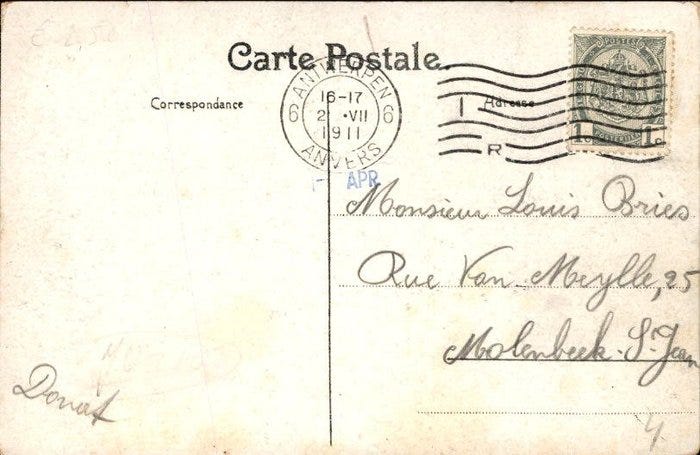 € 2,50
Carte Postale.
Correspondance
Adresse
ANTWERPEN
6 16-17 6
2 · VII
1911
ANVERS
1
R
POSTES
1c 1c
APR
Monsieur Louis Bries
Rue Van Meylle, 25
Molenbeek-St-Jean
Donat
4